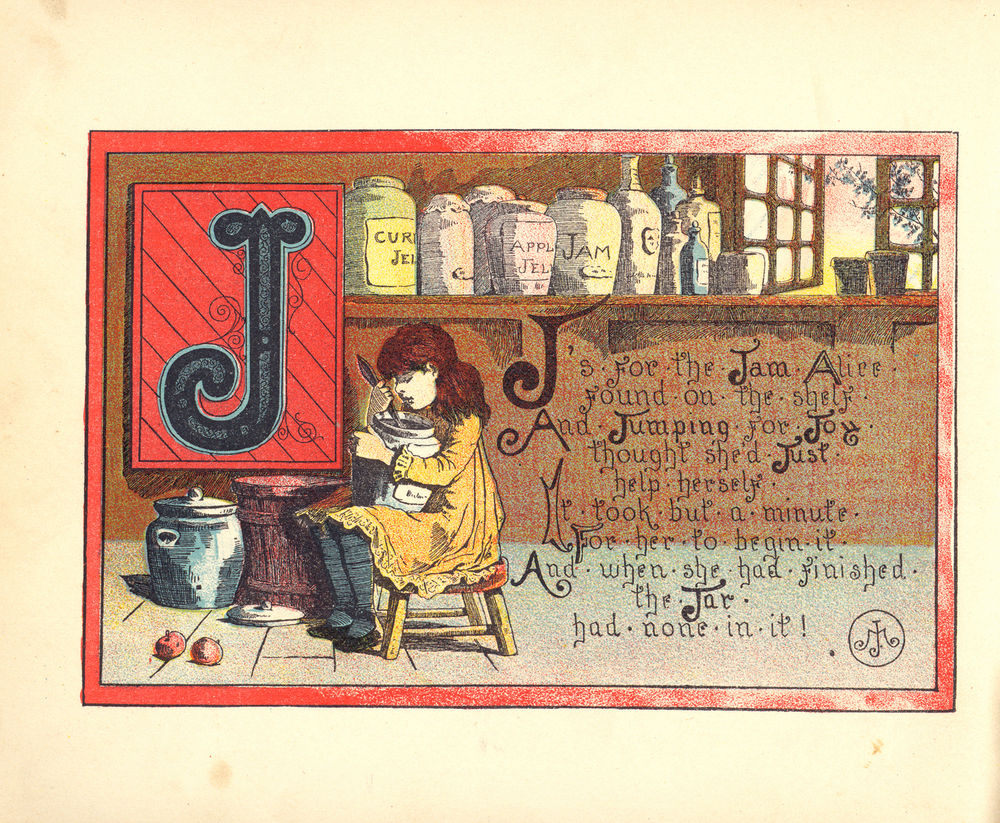 J
CUR
JEL
APPL
JEL
JAM
C
J's · for · the · Jam · Alice ·
found · on · the · shelf ·
And · Jumping for Joy
thought she'd Just ·
help · herself ·
It · took · but · a · minute ·
For · her · to · begin · it ·
And · when · she · had · finished ·
the · Jar ·
had · none · in · it !